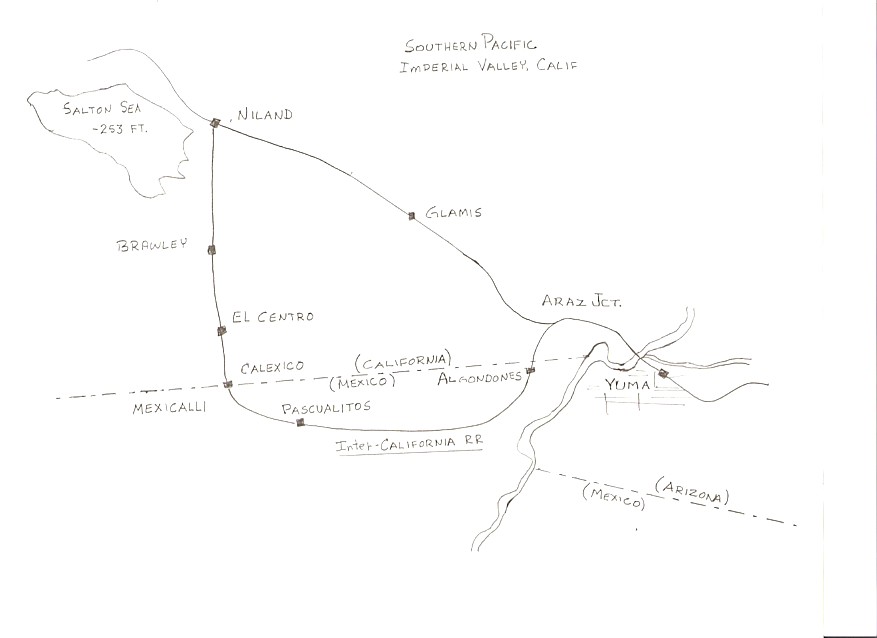 SOUTHERN PACIFIC
IMPERIAL VALLEY, CALIF
SALTON SEA
-253 FT.
NILAND
GLAMIS
BRAWLEY
ARAZ JCT.
EL CENTRO
CALEXICO
(CALIFORNIA)
(MEXICO)
ALGONDONES
YUMA
MEXICALLI
PASCUALITOS
Inter-CALIFORNIA RR
(ARIZONA)
(MEXICO)